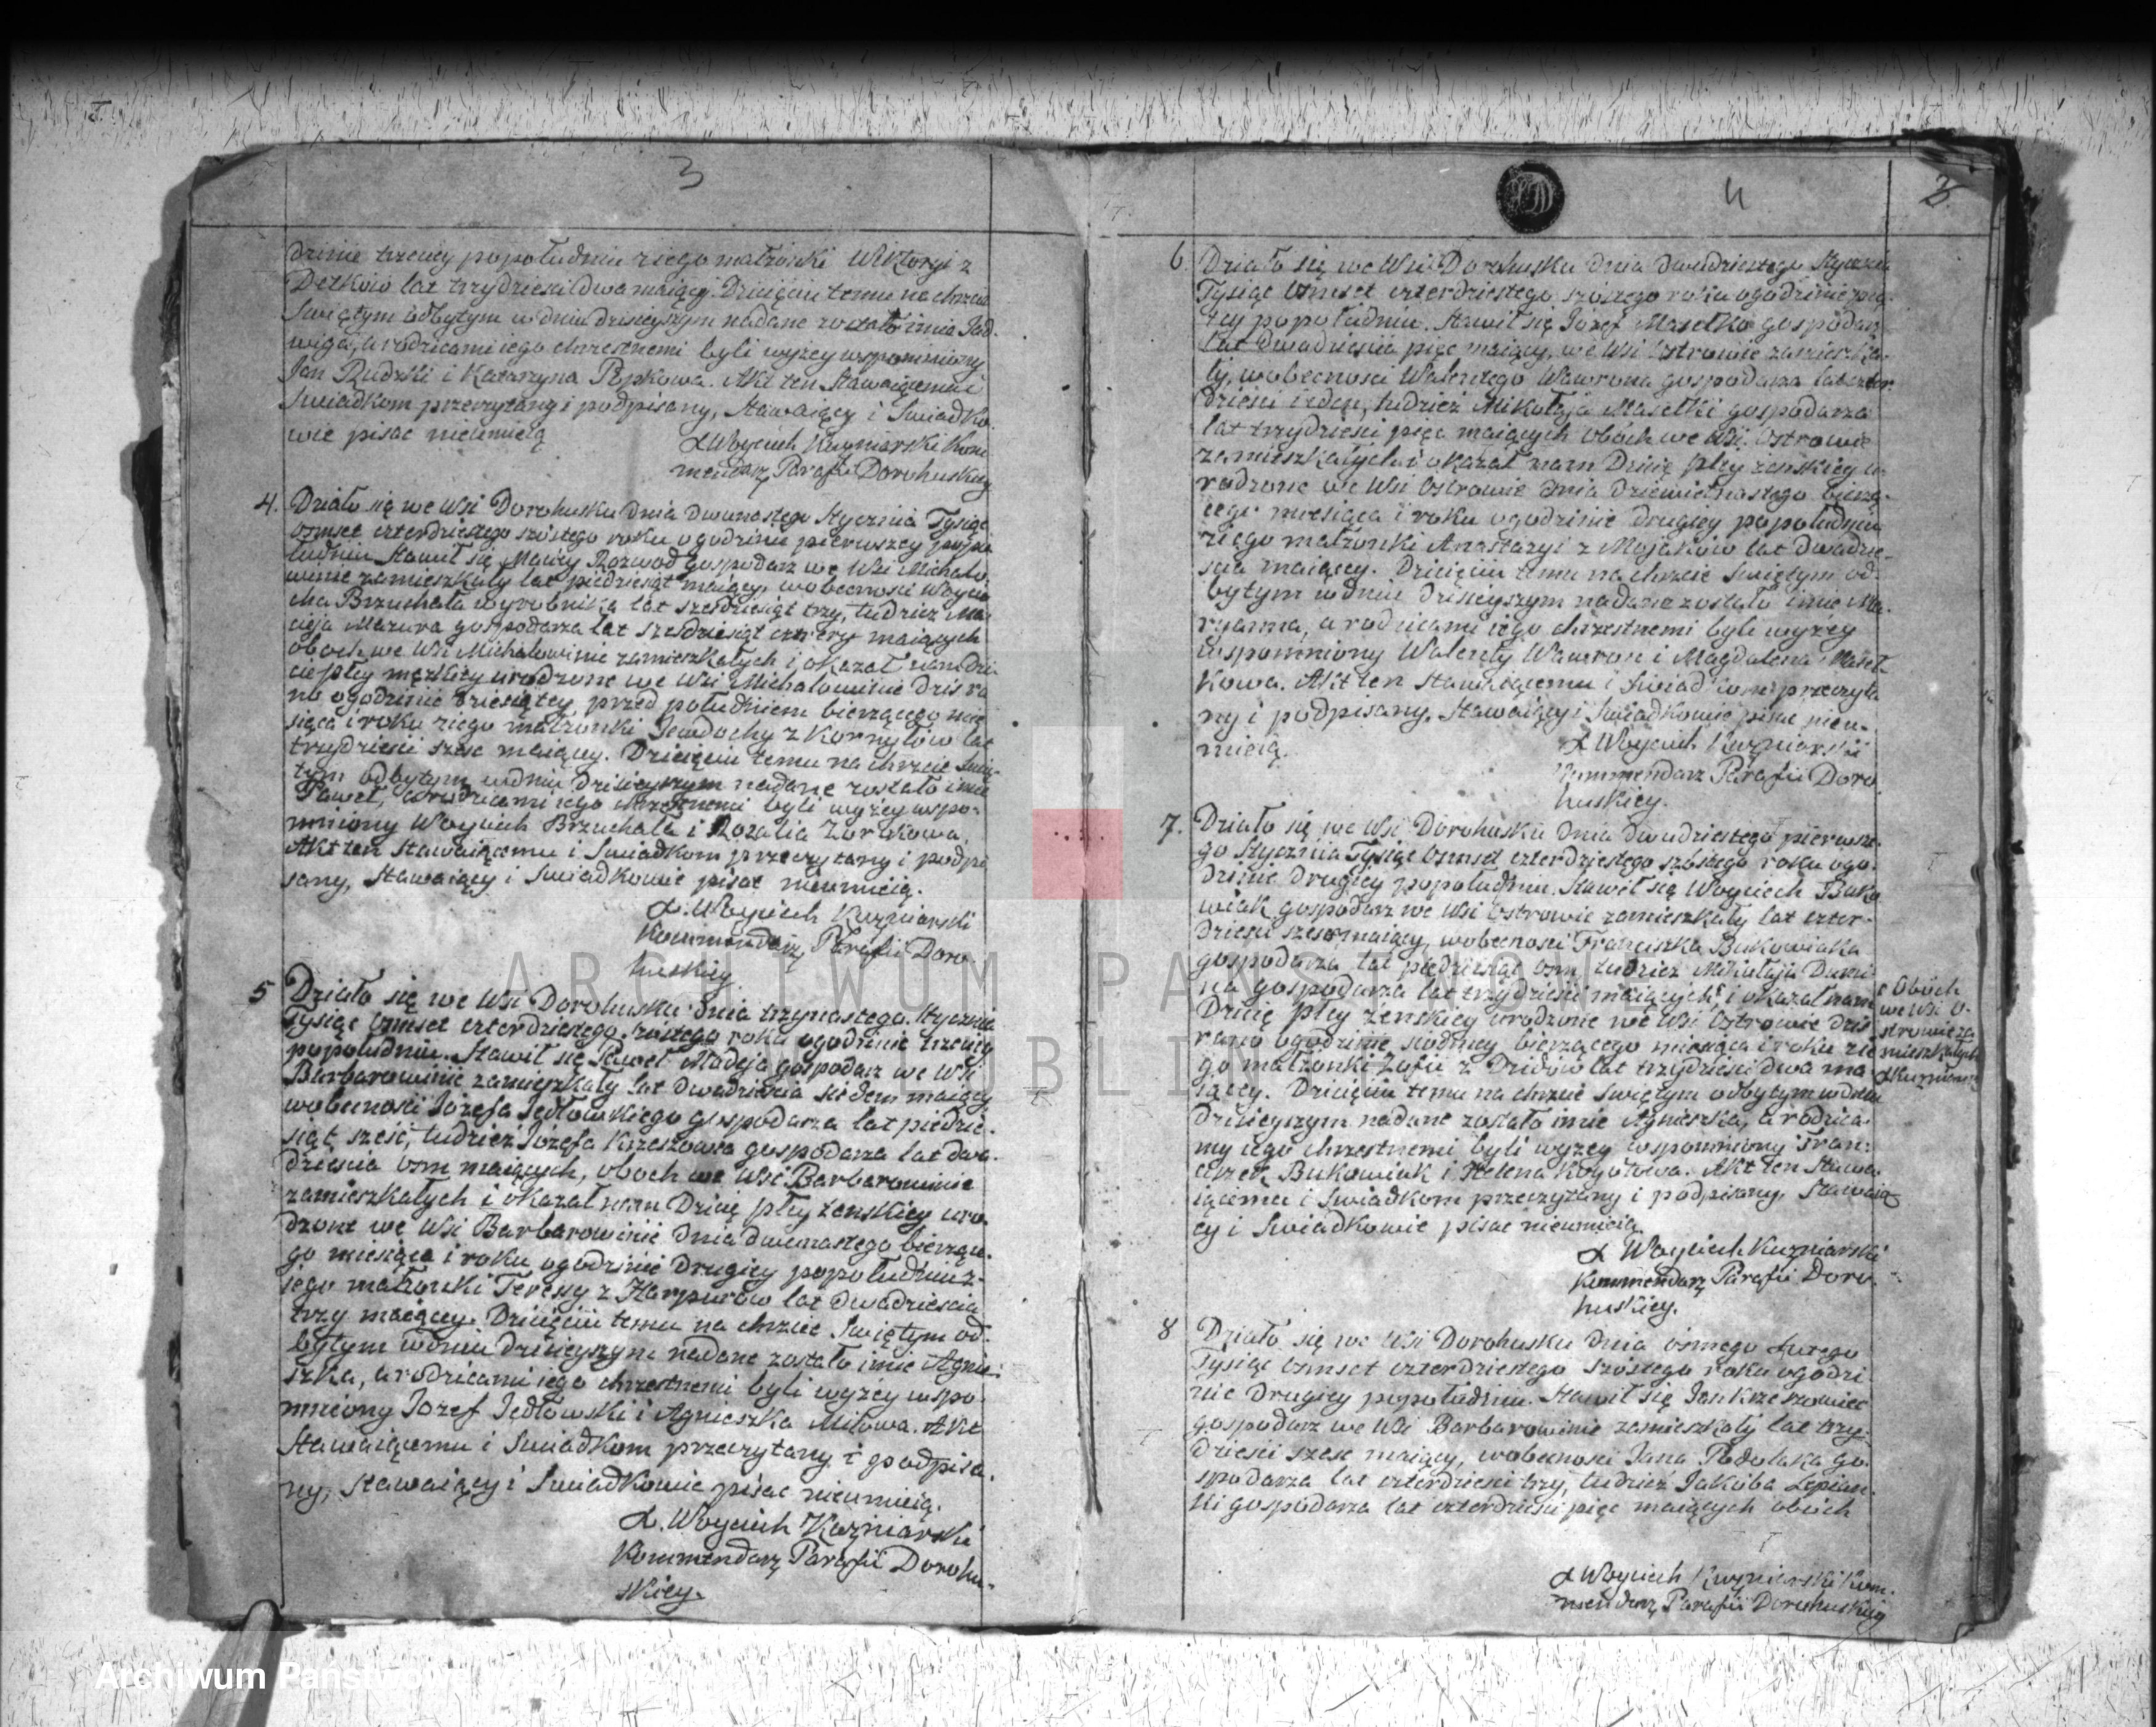 3
dzinie trzeciey popołudniu ziego małżonki Wiktoryi z
Detków lat trzydzieści dwa maiącey. Dziecięciu temu na chrzcie
Swiętym odbytym w dniu dzisieyszym nadane zostało imie Jad-
wiga, a rodzicami iego chrzestnemi byli wyżey wspomniony
Jan Rudzki i Katarzyna Popkowa. Akt ten Stawaiącemu i
Swiadkom przeczytany i podpisany, Stawaiący i Swiadko-
wie pisac nieumieią
X Woyciech Kuzniarski Kom-
mendarz Parafii Dorohuskiey
4. Działo się we Wsi Dorohusku dnia dwunastego Stycznia Tysiąc
Osmset czterdziestego szóstego roku ogodzinie pierwszey popo-
łudniu Stawił się Maciey Rozwod gospodarz we Wsi Michało-
winie zamieszkały lat piędziesiąt maiący, wobecności Woycie-
cha Brzuchala wyrobnika lat sześdziesiąt trzy, tudzież Ma-
cieja Mazura gospodarza lat sześdziesiąt cztery maiących
oboch we Wsi Michałowinie zamieszkałych i okazał nam dzi-
cie płey męzkiey urodzone we Wsi Michałowinie dziś ra-
no ogodzinie dziesiątey, przed południem bierzącego mie-
siąca i roku ziego małżonki Jewdochy z Kornyłów lat
trzydzieści szesc maiącey. Dziecięciu temu na chrzcie Swię-
tym odbytym wdniu dzisieyszym nadane zostało imie
Paweł, a rodzicami iego chrzestnemi byli wyżey wspo-
mniony Woyciech Brzuchala i Rozalia Zorakowa.
Akt ten Stawaiącemu i Swiadkom przeczytany i podpi-
sany, Stawaiący i Swiadkowie pisac nieumieią.
X. Woyciech Kuzniarski
Kommendarz Parafii Doro-
huskiey
5 Działo się we Wsi Dorohusku dnia trzynastego Stycznia
Tysiąc Osmset czterdziestego szóstego roku ogodzinie trzeciey
popołudniu. Stawił się Paweł Madeja gospodarz we Wsi
Barbarowinie zamieszkały lat dwadzieścia siedem maiący
wobecności Józefa Jedłowskiego gospodarza lat piedzie-
siąt sześć, tudzież Józefa Krzeszowca gospodarza lat dwa-
dzieścia osm maiących, oboch we Wsi Barbarowinie
zamieszkałych i okazał nam Dziecię płey żenskiey uro-
dzone we Wsi Barbarowinie dnia dwunastego bierzące-
go miesiąca i roku ogodzinie drugiey popołudniu z-
iego małżonki Teressy z Harpurów lat dwadzieścia
trzy maiącey. Dziecięciu temu na chrzcie Swiętym od-
bytym wdniu dzisieyszym nadane zostało imie Agnie-
szka, a rodzicami iego chrzestnemi byli wyżey wspo-
mniony Jozef Jedłowski i Agnieszka Miłowa. Akt
Stawaiącemu i Swiadkom przeczytany i podpisa-
ny, stawaiący i Swiadkowie pisac nieumieią.
X. Woyciech Kuzniarski
Kommendarz Parafii Dorohu-
skiey.
4
3
6 Działo się we Wsi Dorohusku dnia dwudziestego Stycznia
Tysiąc Osmset czterdziestego szóstego roku ogodzinie pią-
tey popołudniu. Stawił się Józef Masełko gospodarz
lat dwadzieścia pięc maiący, we Wsi Ostrowie zamieszka-
ły, wobecności Walentego Wawrona gospodarza lat czter-
dzieści ieden, tudzież Mikołaja Masełki gospodarza
lat trzydzieści pięc maiących obóch we Wsi Ostrowie
zamieszkałych i okazał nam Dziecię płey żenskiey u-
rodzone we Wsi Ostrowie dnia dziewietnastego bierzą-
cego miesiąca i roku ogodzinie drugiey popołudniu
ziego małżonki Anastazyi z Mojaków lat dwadzie-
scia maiącey. Dziecięciu temu na chrzcie Swiętym od-
bytym wdniu dzisieyszym nadane zostało imie Ma-
ryanna, a rodzicami iego chrzestnemi byli wyżey
wspomniony Walenty Wawron i Magdalena Maseł-
kowa. Akt ten Stawaiącemu i Swiadkom przeczyta-
ny i podpisany, Stawaiący i Swiadkowie pisac nieu-
mieią.
X Woyciech Kuzniarski
Kommendarz Parafii Doro-
huskiey.
7. Działo się we Wsi Dorohusku dnia dwudziestego pierwsze-
go Stycznia Tysiąc Osmset czterdziestego szóstego roku ogo-
dzinie drugiey popołudniu. Stawił się Woyciech Buko-
wiak gospodarz we Wsi Ostrowie zamieszkały lat czter-
dzieści szesc maiący, wobecności Franciszka Bukowiaka
gospodarza lat piędziesiąt osm, tudzież Mikołaja Dumi-
na gospodarza lat trzydzieści maiących, i okazał nam
Dziecię płey żenskiey urodzone we Wsi Ostrowie dziś
rano ogodzinie siódmey bierzącego miesiąca i roku zie-
go małżonki Zofii z Dzidów lat trzydzieści dwa ma-
iącey. Dziecięciu temu na chrzcie Swiętym odbytym wdniu
dzisieyszym nadane zostało imie Agnieszka, a rodzica-
my iego chrzestnemi byli wyżey wspomniony Fran-
ciszek Bukowiak i Helena Kogutowa. Akt ten Stawa-
iącemu i Swiadkom przeczytany i podpisany, Stawaią-
cy i Swiadkowie pisac nieumieią.
Obóch
we Wsi O-
strowie za-
mieszkałych
X Kuzniarski
X Woyciech Kuzniarski
Kommendarz Parafii Doro-
huskiey.
8 Działo się we Wsi Dorohusku dnia osmego Lutego
Tysiąc Osmset czterdziestego szóstego roku ogodzi-
nie drugiey popołudniu. Stawił się Jan Krzeszowiec
gospodarz we Wsi Barbarowinie zamieszkały lat trzy-
dzieści szesc maiący, wobecności Jana Podolaka go-
spodarza lat czterdzieści trzy, tudzież Jakóba Lepian-
ki gospodarza lat czterdzieści pięc maiących obóch
X Woyciech Kuzniarski Kom-
mendarz Parafii Dorohuskiey
ARCHIWUM PAŃSTWOWE
W LUBLINIE
Archiwum Państwowe